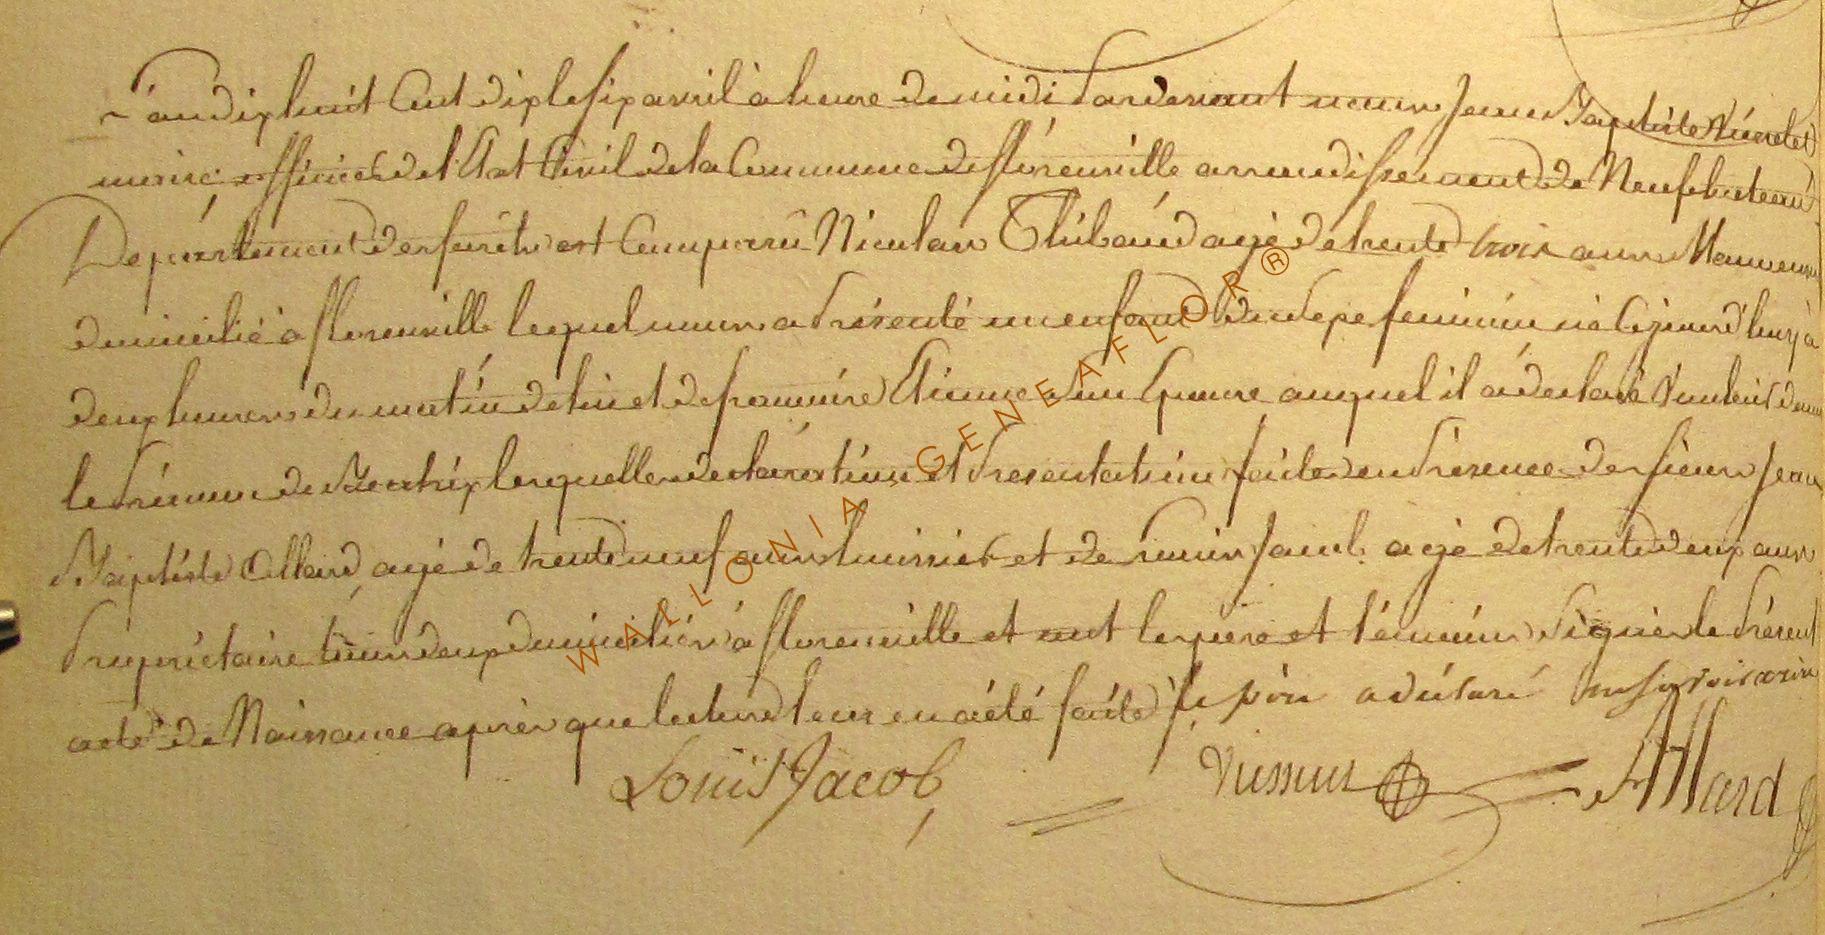 L'an dix huit cent dix le six avril à heure de midi Pardevant nous Jean Baptiste
maire officier de l'Etat Civil de la Commune de florenville arrondissement de Neufchateau
Departement des forêts est comparu Nicolas Thibaud agé de trente trois ans Manoeuvre
domicilié à florenville lequel nous a présenté un enfant du sexe feminin né cejourd'huy à
deux heures du matin de lui et de Etienne son Epouse auquel il a declaré vouloir donner
le prénom de Beatrix lesquelles declaration et presentation faites en présence des sieurs Jean
Baptiste Allard agé de trente neuf ans huissier et de Louis Jacob agé de trente deux ans
propriétaire tous deux domiciliés à florenville et ont les pere et témoins signés le présent
acte de Naissance après que lecture leur en a été faite le père a déclaré ne savoir écrire
Louis Jacob Allard
WALLONIA - GENEAFLOR ®